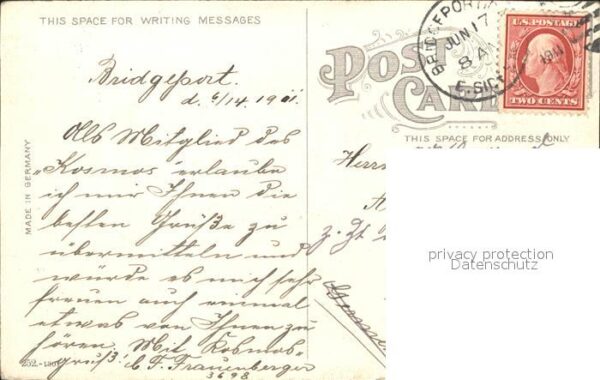 THIS SPACE FOR WRITING MESSAGES
Bridgeport.
d. 6/14. 1911.
Als Mitglied des
"Kosmos" erlaube
ich mir Ihnen die
besten Grüße zu
übermitteln und
würde es mich sehr
freuen auch einmal
etwas von Ihnen zu
hören. Mit Kosmos-
gruß! F. Frauenberger
3698
MADE IN GERMANY
POST
CARD
BRIDGEPORT
JUN 17
8 AM
1911
U.S. POSTAGE
TWO CENTS
THIS SPACE FOR ADDRESS ONLY
Herrn
z. Zt
privacy protection
Datenschutz